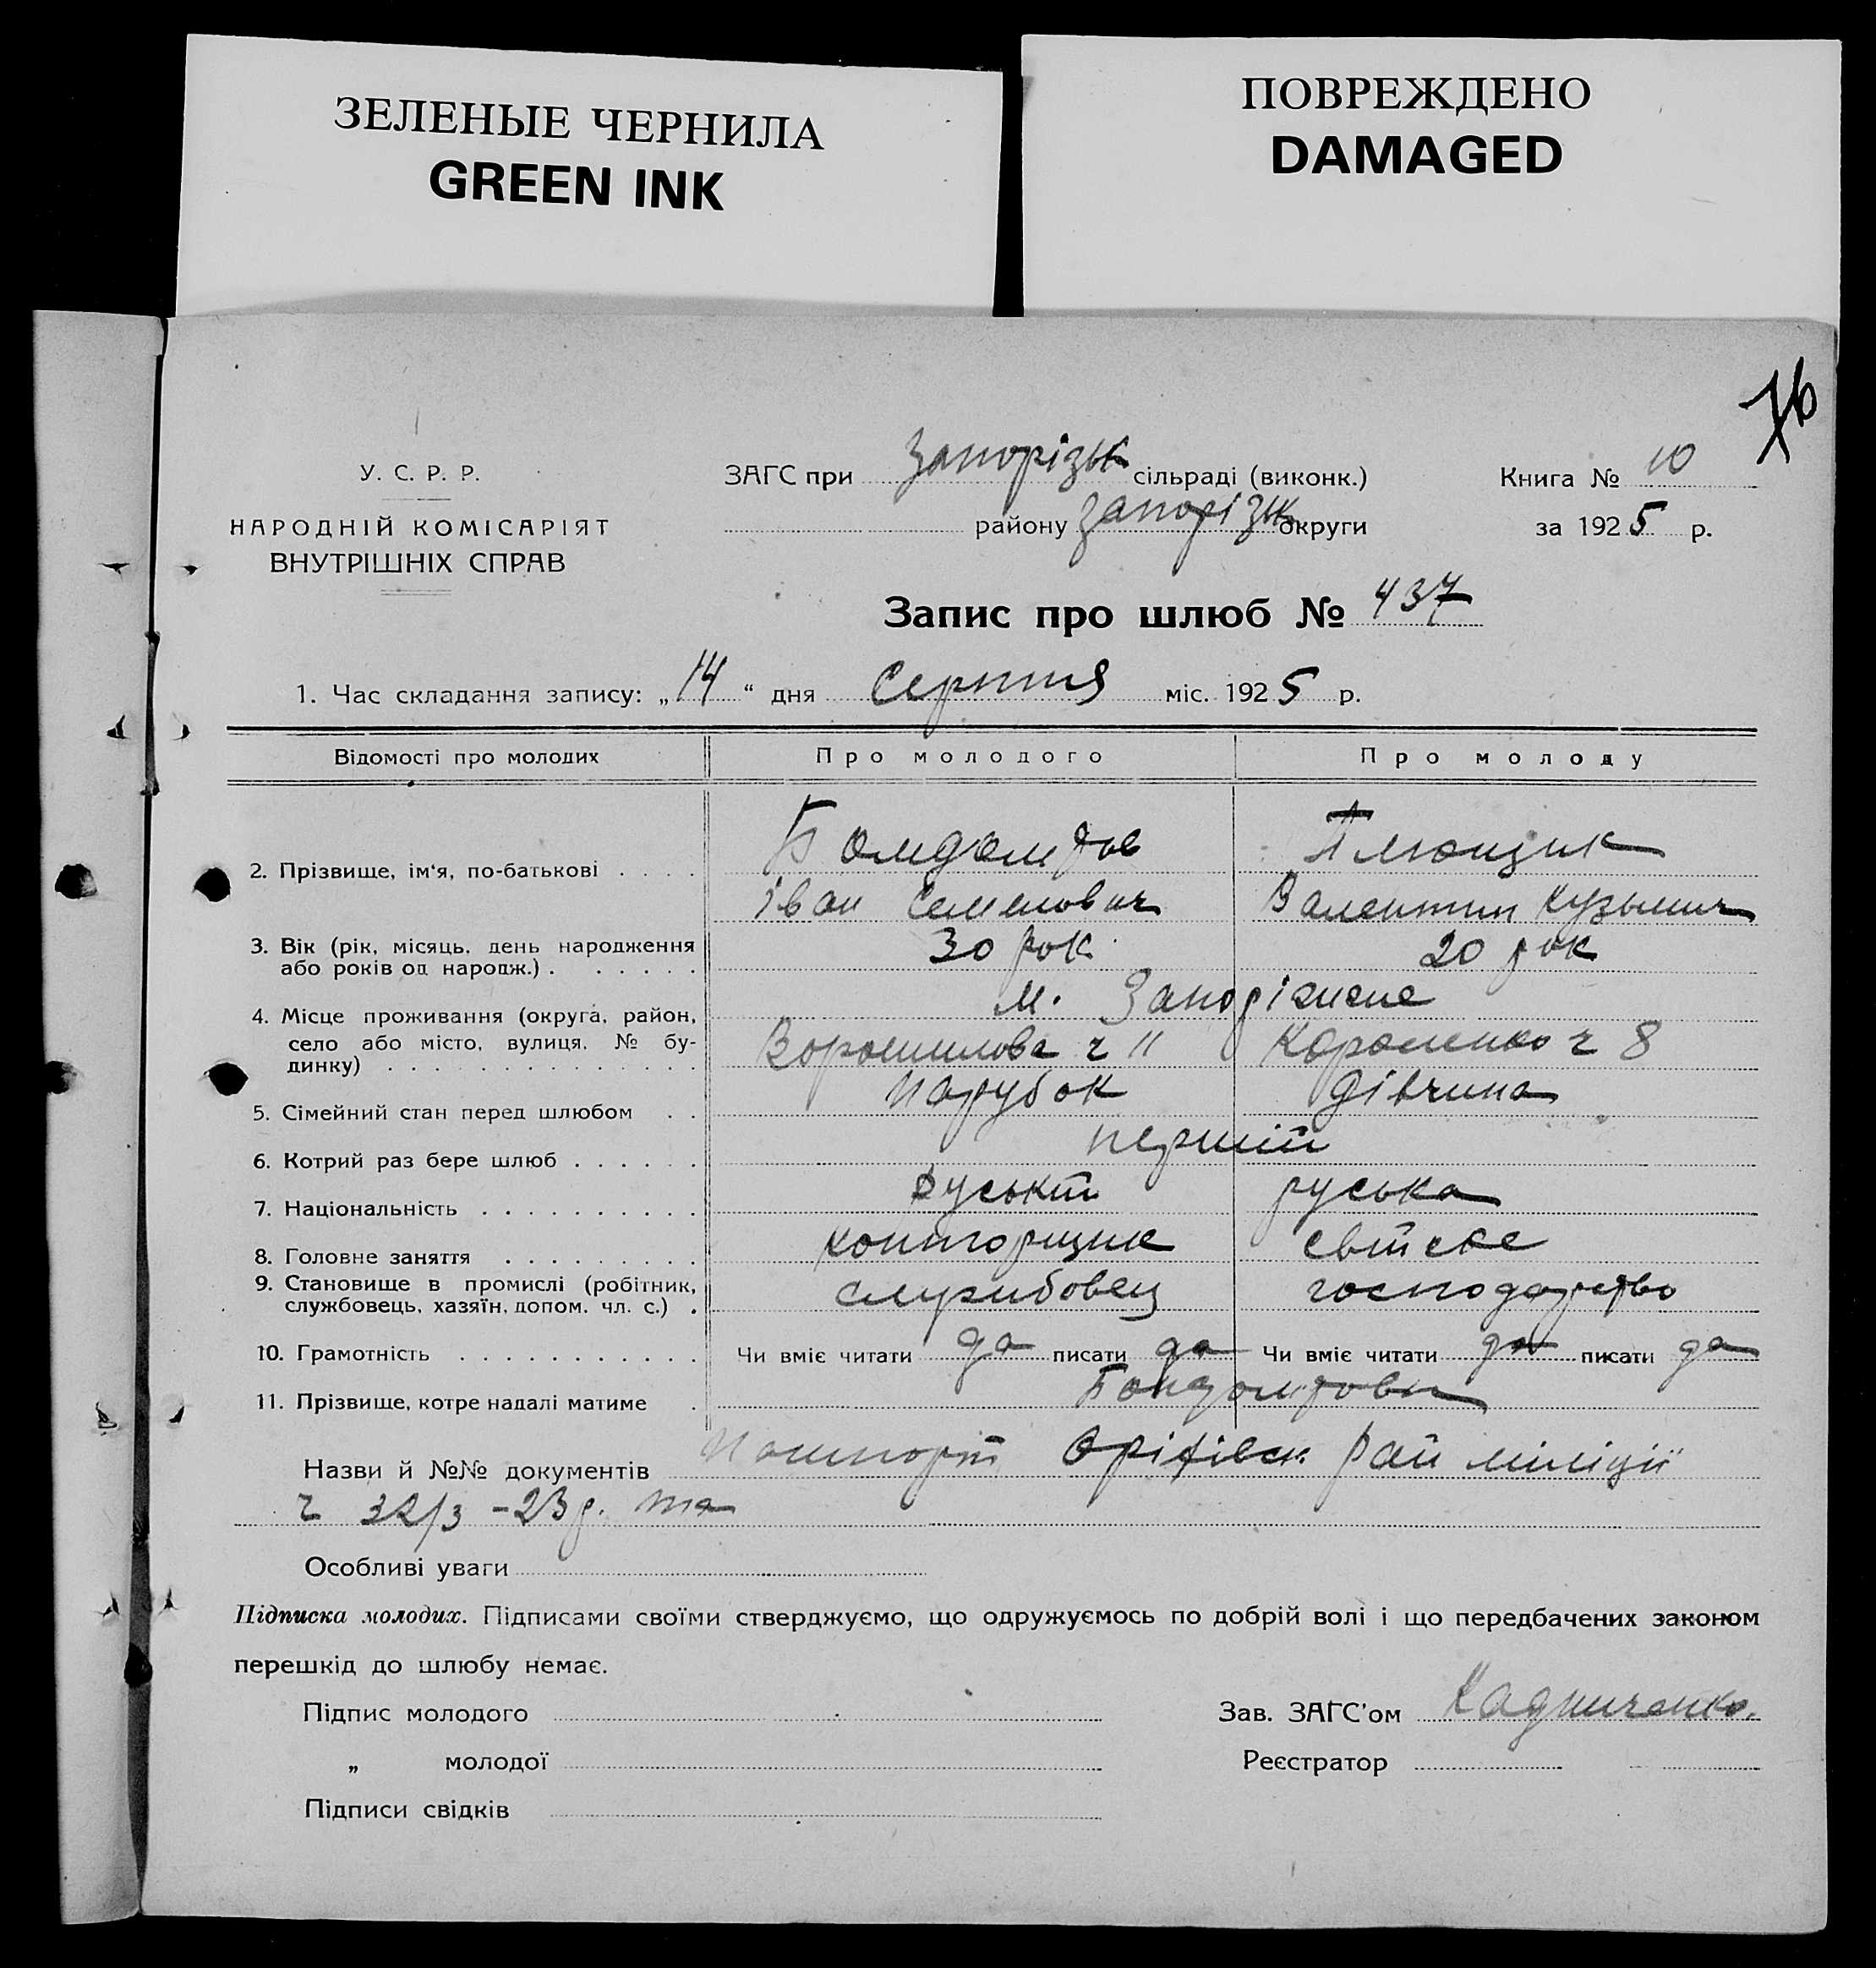 ЗЕЛЕНЫЕ ЧЕРНИЛА
GREEN INK
ПОВРЕЖДЕНО
DAMAGED
76
У. С. Р. Р.
НАРОДНІЙ КОМІСАРІЯТ
ВНУТРІШНІХ СПРАВ
ЗАГС при Запорізьк сільраді (виконк.)
району Запорізьк округи
Книга № 10
за 1925 р.
Запис про шлюб № 437
1. Час складання запису: „14“ дня Серпня міс. 1925 р.
Відомості про молодих Про молодого Про молоду
2. Прізвище, ім'я, по-батькові . . . .
Іван Семенович Валентин Кузьмич
3. Вік (рік, місяць, день народження
або років од народж.) . . . . . . 30 рок. 20 рок
4. Місце проживання (округа, район,
село або місто, вулиця, № бу-
динку) . . . . . . . . . . . . . . .
м. Запоріжже
Ворошилова ч 11 Короленко ч 8
5. Сімейний стан перед шлюбом . . Парубок дівчина
6. Котрий раз бере шлюб . . . . . . перший
7. Національність . . . . . . . . . . руський руська
8. Головне заняття . . . . . . . . . конторщик
9. Становище в промислі (робітник,
службовець, хазяїн, допом. чл. с.) . службовец господарство
10. Грамотність . . . . . . . . . . . Чи вміє читати да писати да Чи вміє читати да писати да
11. Прізвище, котре надалі матиме .
Назви й №№ документів Пашпорт Оріхівск. Рай міліції
ч 32/3 - 23 р. та
Особливі уваги
Підписка молодих. Підписами своїми стверджуємо, що одружуємось по добрій волі і що передбачених законом
перешкід до шлюбу немає.
Підпис молодого
„ молодої
Підписи свідків
Зав. ЗАГС'ом
Реєстратор